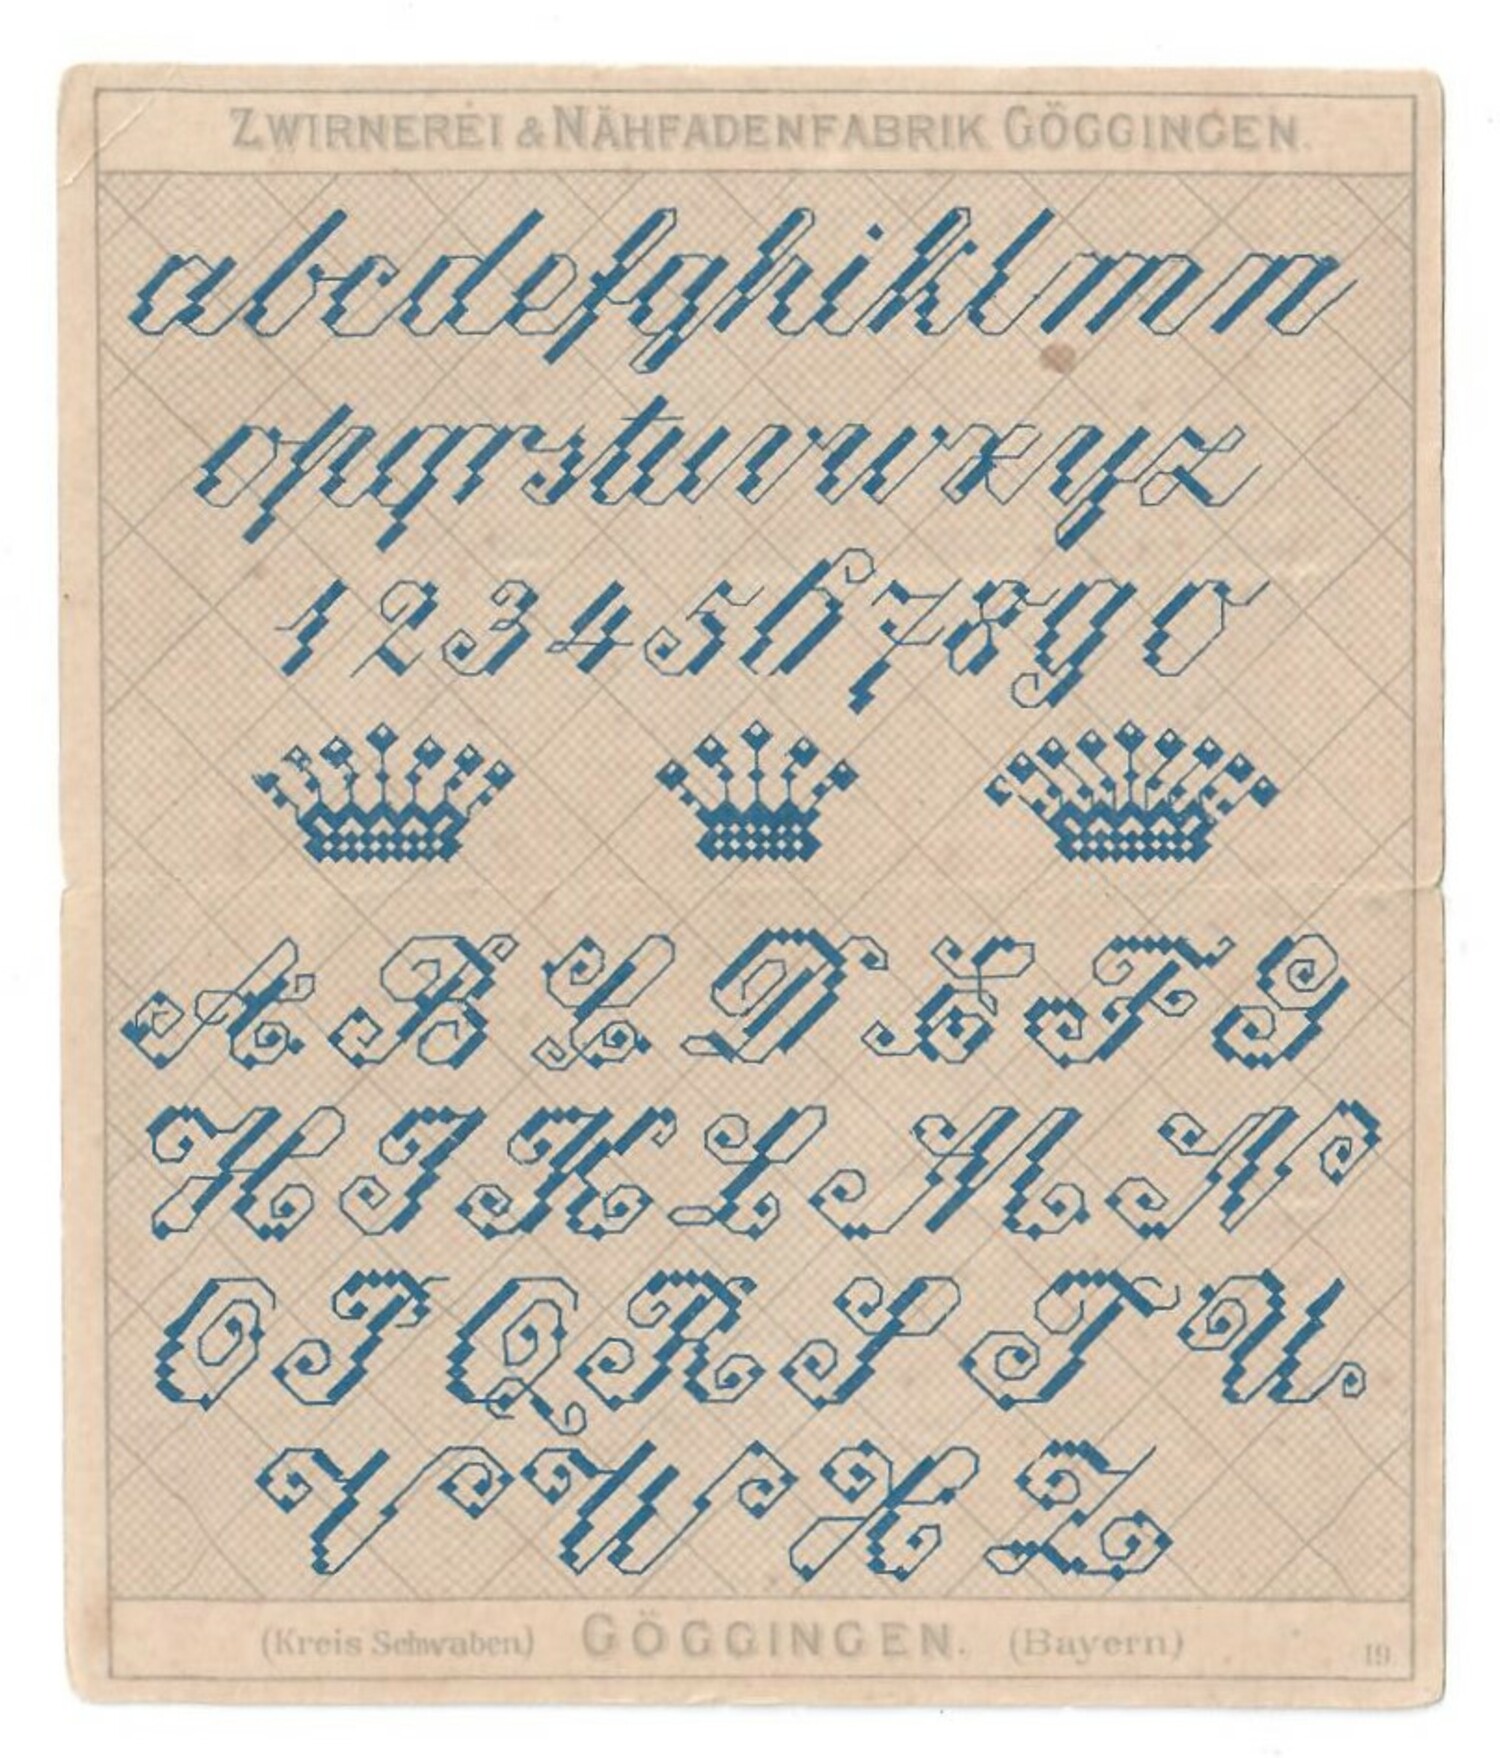 ZWIRNEREI & NÄHFADENFABRIK GÖGGINGEN.
abcdefghiklmn
opqrstuvwxyz
1234567890
ABCDEFG
HIKLMN
OPQRSTU
VWXZ
(Kreis Schwaben) GÖGGINGEN. (Bayern) 19.